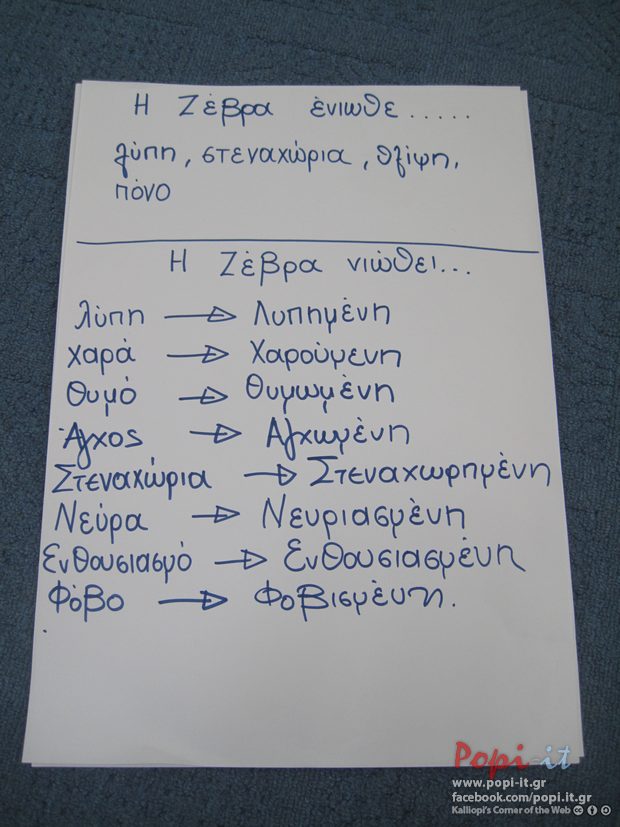 Η Ζέβρα ένιωθε......
λύπη, στεναχώρια, θλίψη,
πόνο
Η Ζέβρα νιώθει...
λύπη → Λυπημένη
χαρά → Χαρούμενη
Θυμό → Θυμωμένη
Άγχος → Αγχωμένη
Στεναχώρια → Στεναχωρημένη
Νεύρα → Νευριασμένη
Ενθουσιασμό → Ενθουσιασμένη
Φόβο → Φοβισμένη.
Popi-it
www.popi-it.gr
facebook.com/popi.it.gr
Kalliopi's Corner of the Web